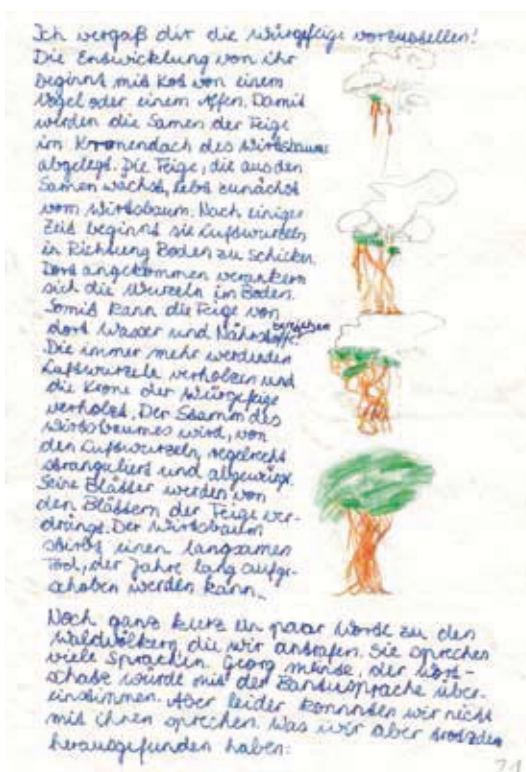 Ich vergaß dir die Würgefeige vorzustellen!
Die Entwicklung von ihr
beginnt mit Kot von einem
Vogel oder einem Affen. Damit
werden die Samen der Feige
im Kronendach des Wirtsbaums
abgelegt. Die Feige, die aus den
Samen wächst, lebt zunächst
vom Wirtsbaum. Nach einiger
Zeit beginnt sie Luftwurzeln
in Richtung Boden zu schicken.
Dort angekommen verankern
sich die Wurzeln im Boden.
Somit kann die Feige von
dort Wasser und Nährstoffe beziehen
Die immer mehr werdenden
Luftwurzeln verholzen und
die Krone der Würgefeige
verholzt. Der Stamm des
Wirtsbaumes wird, von
den Luftwurzeln, regelrecht
stranguliert und abgewürgt.
Seine Blätter werden von
den Blättern der Feige ver-
drängt. Der Wirtsbaum
stirbt einen langsamen
Tod, der Jahre lang aufge-
schoben werden kann.
Noch ganz kurz ein paar Worte zu den
Waldvölkern die wir antrafen. Sie sprechen
viele Sprachen. Georg meinte, der Wort-
schatz würde mit der Bantusprache über-
einstimmen. Aber leider konnnten wir nicht
mit ihnen sprechen. Was wir aber trotzdem
herausgefunden haben:
21